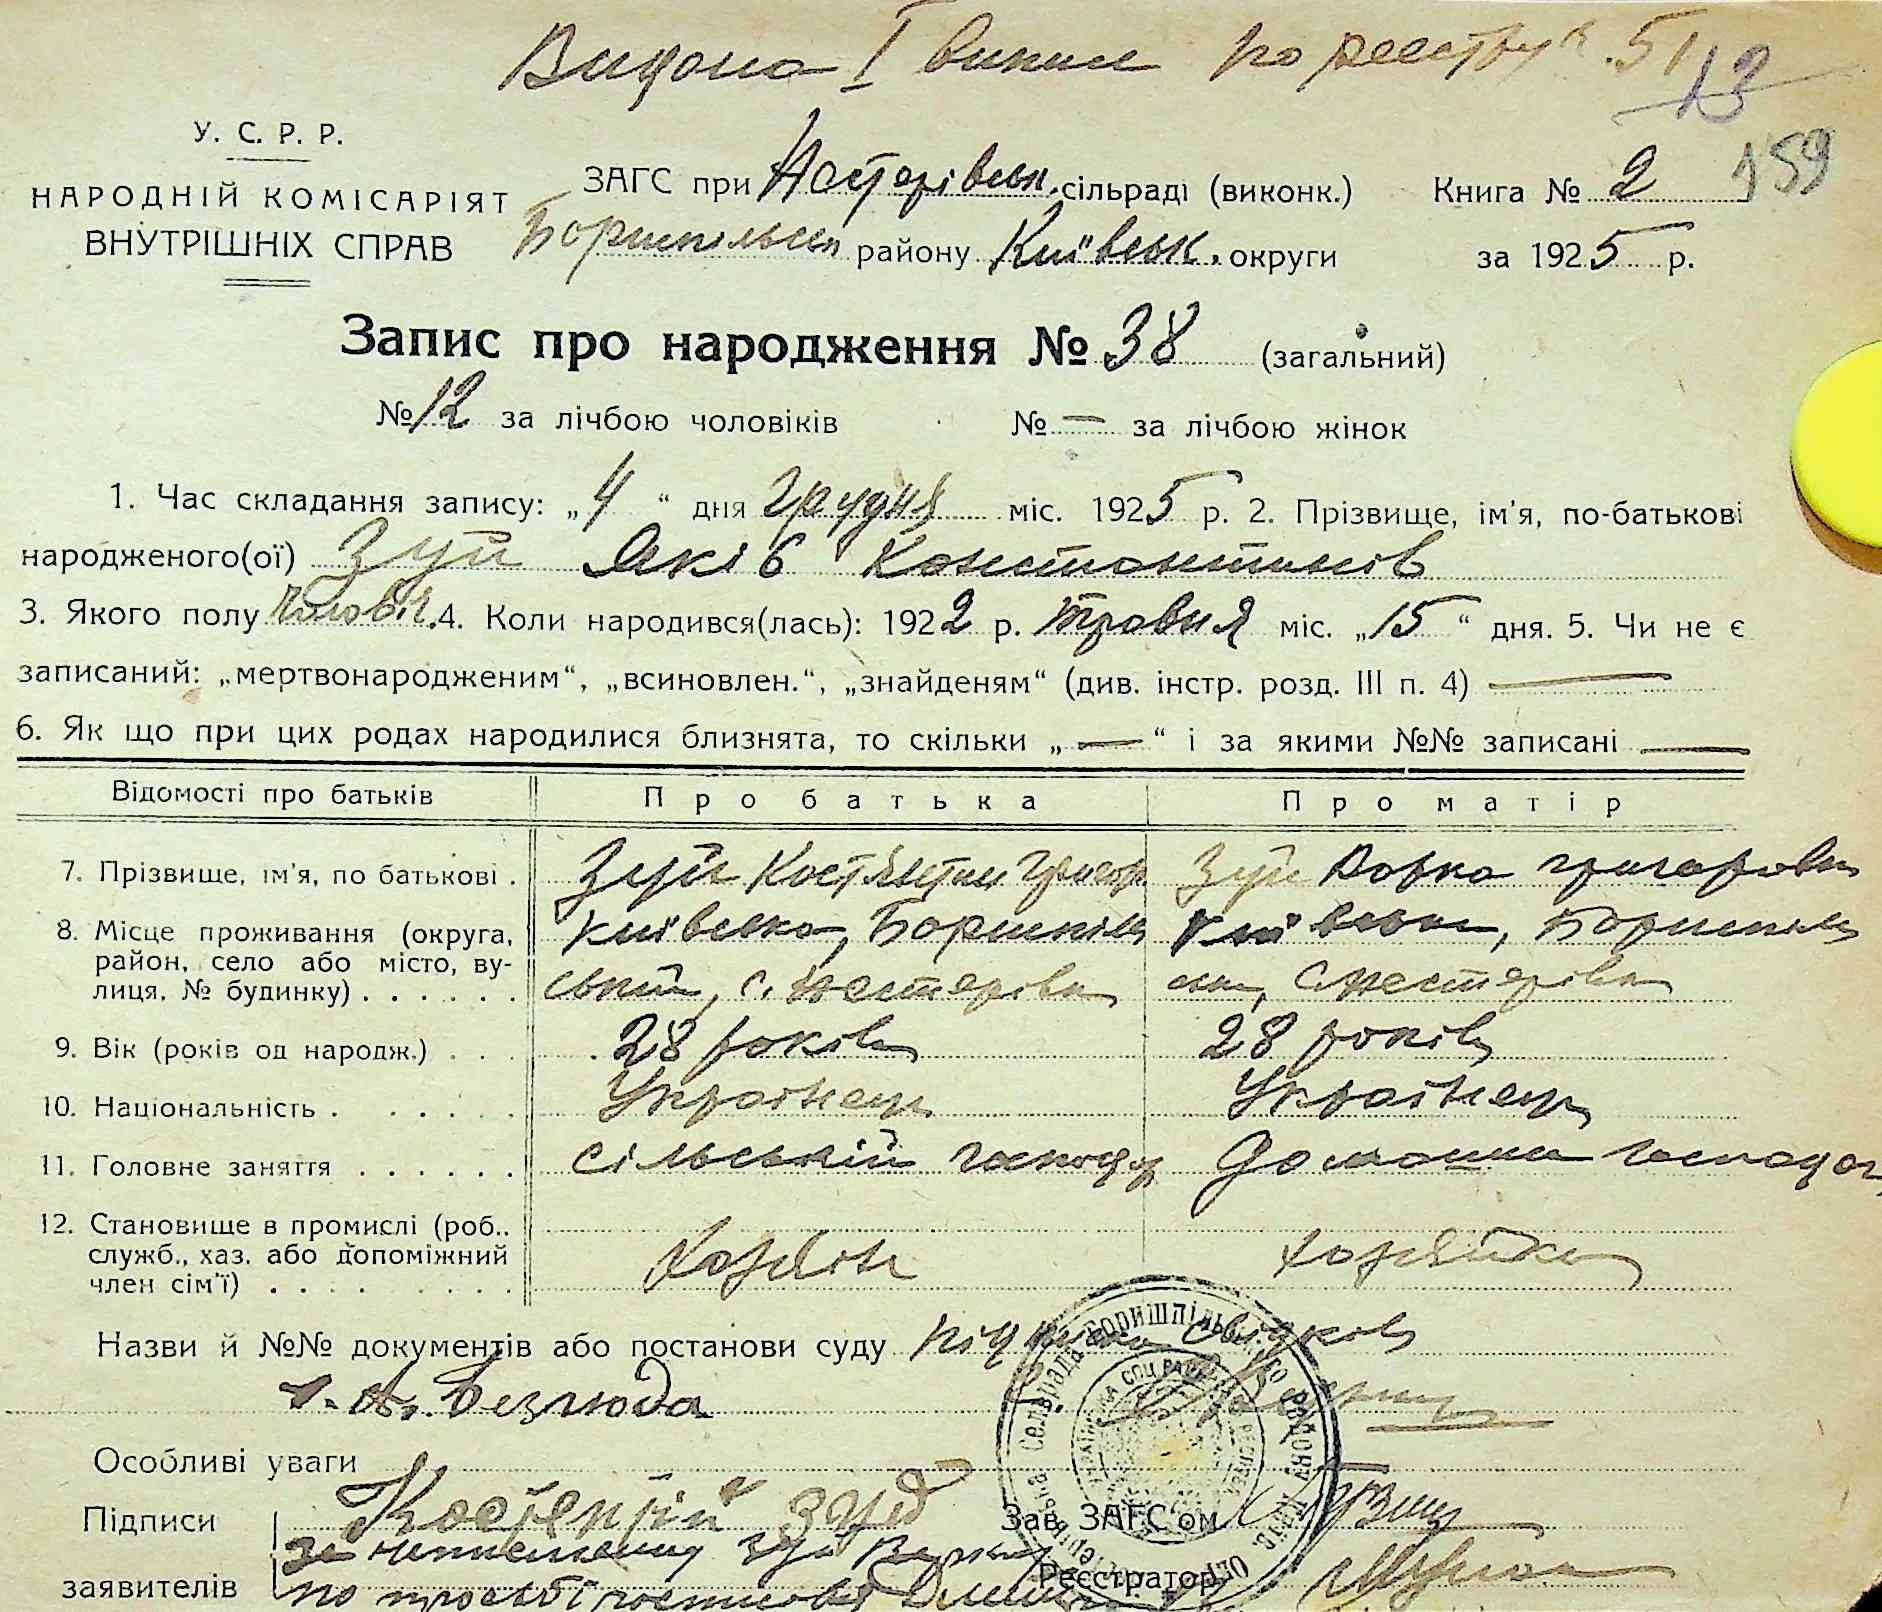 Видана І випис по реєстру 51
13
159
У. С. Р. Р.
НАРОДНІЙ КОМІСАРІЯТ
ВНУТРІШНІХ СПРАВ
ЗАГС при Нестерівськ. сільраді (виконк.) Книга № 2
Бориспільськ району Київськ. округи за 1925 р.
Запис про народження № 38 (загальний)
№ 12 за лічбою чоловіків № — за лічбою жінок
1. Час складання запису: „4“ дня грудня міс. 1925 р. 2. Прізвище, ім'я, по-батькові
народженого(ої) Зуй Яків Константинів
3. Якого полу чоловіч. 4. Коли народився(лась): 1922 р. травня міс. „15“ дня. 5. Чи не є
записаний: „мертвонародженим“, „всиновлен.“, „знайденям“ (див. інстр. розд. III п. 4) —
6. Як що при цих родах народилися близнята, то скільки „—“ і за якими №№ записані —
Відомості про батьків Про батька Про матір
7. Прізвище, ім'я, по батькові . Зуй Костянтин Григор Зуй Варка григоровн
8. Місце проживання (округа, район, село або місто, вулиця, № будинку) . . . . . . Київська, Бориспіль Київська, Бориспіль
ський, с. Нестерівка ськ, с. Нестерівка
9. Вік (років од народж.) . . . 28 років 28 років
10. Національність . . . . . . Українец Українец
11. Головне заняття . . . . . . сільський господар Домашня господар
12. Становище в промислі (роб., служб., хаз. або допоміжний член сім'ї) . . . . . . . . Хозяїн хозяйка
Назви й №№ документів або постанови суду підписка свідків
1. Безлюда
Особливі уваги
Підписи Зуй Зав. ЗАГС'ом
за неписьменну Зуй Варку
заявителів по просьбі Реєстратор